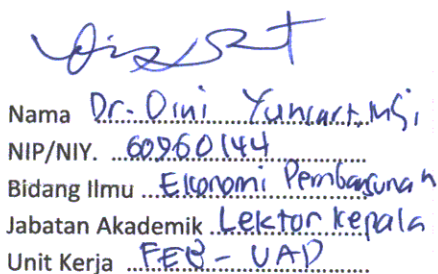 Nama Dr. Dini Yuniarti, MSi
NIP/NIY. 60960144
Bidang Ilmu Ekonomi Pembangunan
Jabatan Akademik Lektor Kepala
Unit Kerja FEB - UAD